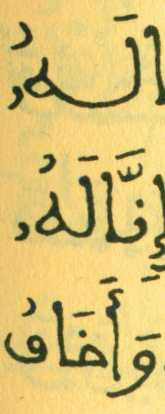 الَهُۥ
إِنَّا لَهُۥ
وَأَخَافُ